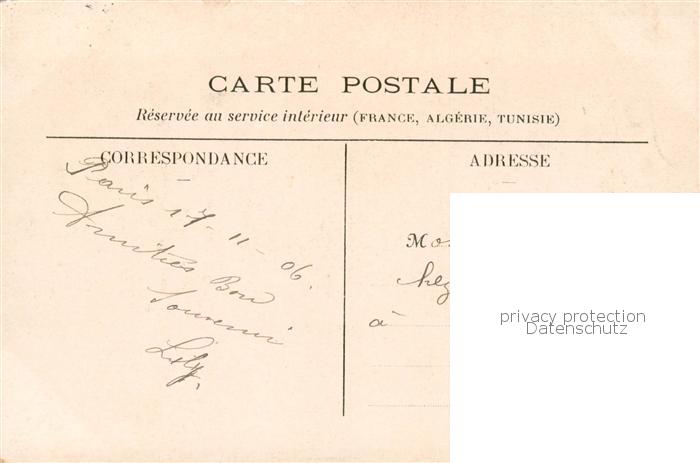 CARTE POSTALE
Réservée au service intérieur (FRANCE, ALGÉRIE, TUNISIE)
CORRESPONDANCE
ADRESSE
Paris 17-11-06.
Amitiés Bon
Souvenir
M
à
privacy protection
Datenschutz